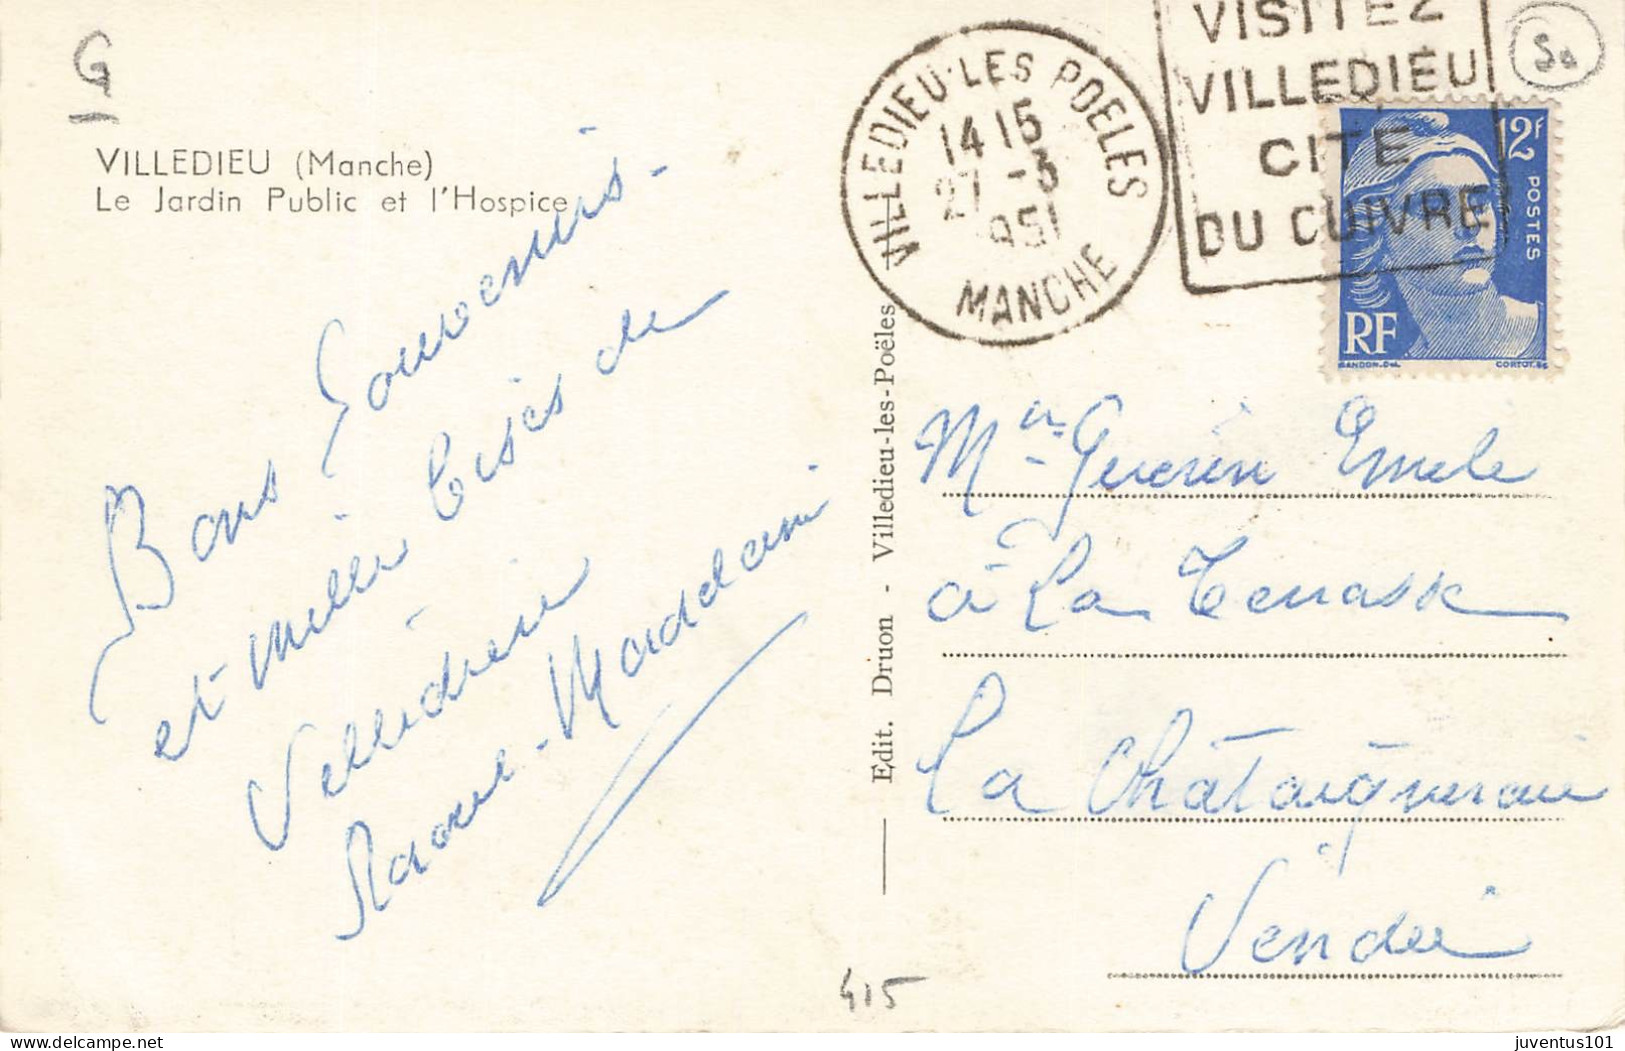 G
VILLEDIEU (Manche)
Le Jardin Public et l'Hospice
Bons Souvenirs -
et mille bises de
Villedieu
Raoul - Magdeleine
Edit. Druon - Villedieu-les-Poëles
VILLEDIEU-LES POELES
14 15
27 -3
1951
MANCHE
VISITEZ
VILLEDIEU
CITE
DU CUIVRE
12F
POSTES
RF
GANDON.DEL.
CORTOT.SC
Guerin Emile
à La Terrasse
La Châtaigneraie
Vendée
415
juventus101